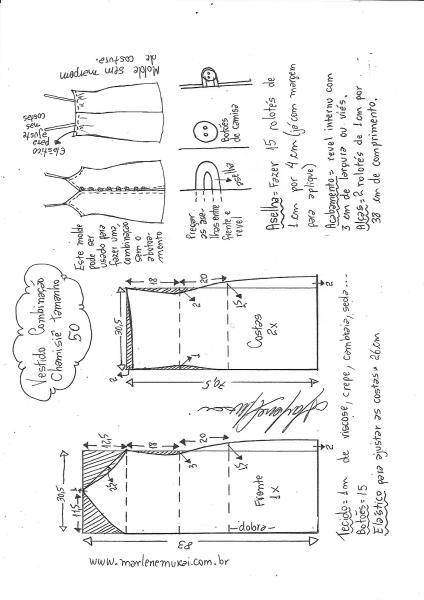 Vestido Combinação
Chamisiê tamanho
50
Este molde
pode ser
usado para
fazer uma
combinação
sem o
abotoa-
mento
Elástico
para
ajuste
nas
costas
Molde sem margem
de costura.
Pregar
as ase-
lhas entre
frente e
revel
aselha
Botões
de camisa
Aselha = Fazer 15 rolotês de
1 cm por 4 cm (já com margem
para aplique)
Acabamento = revel interno com
3 cm de largura ou viés.
Alças = 2 rolotês de 1 cm por
38 cm de comprimento.
30,5
2
18
20
2
1
1,5
2
79,5
Costas
2x
30,5
11,5
1
12,5
18
20
3
1,5
2
83
Frente
1x
dobra
Tecido = 1 m de viscose, crepe, cambraia, seda...
Botões = 15
Elástico para ajustar as costas = 26 cm
www.marlenemukai.com.br